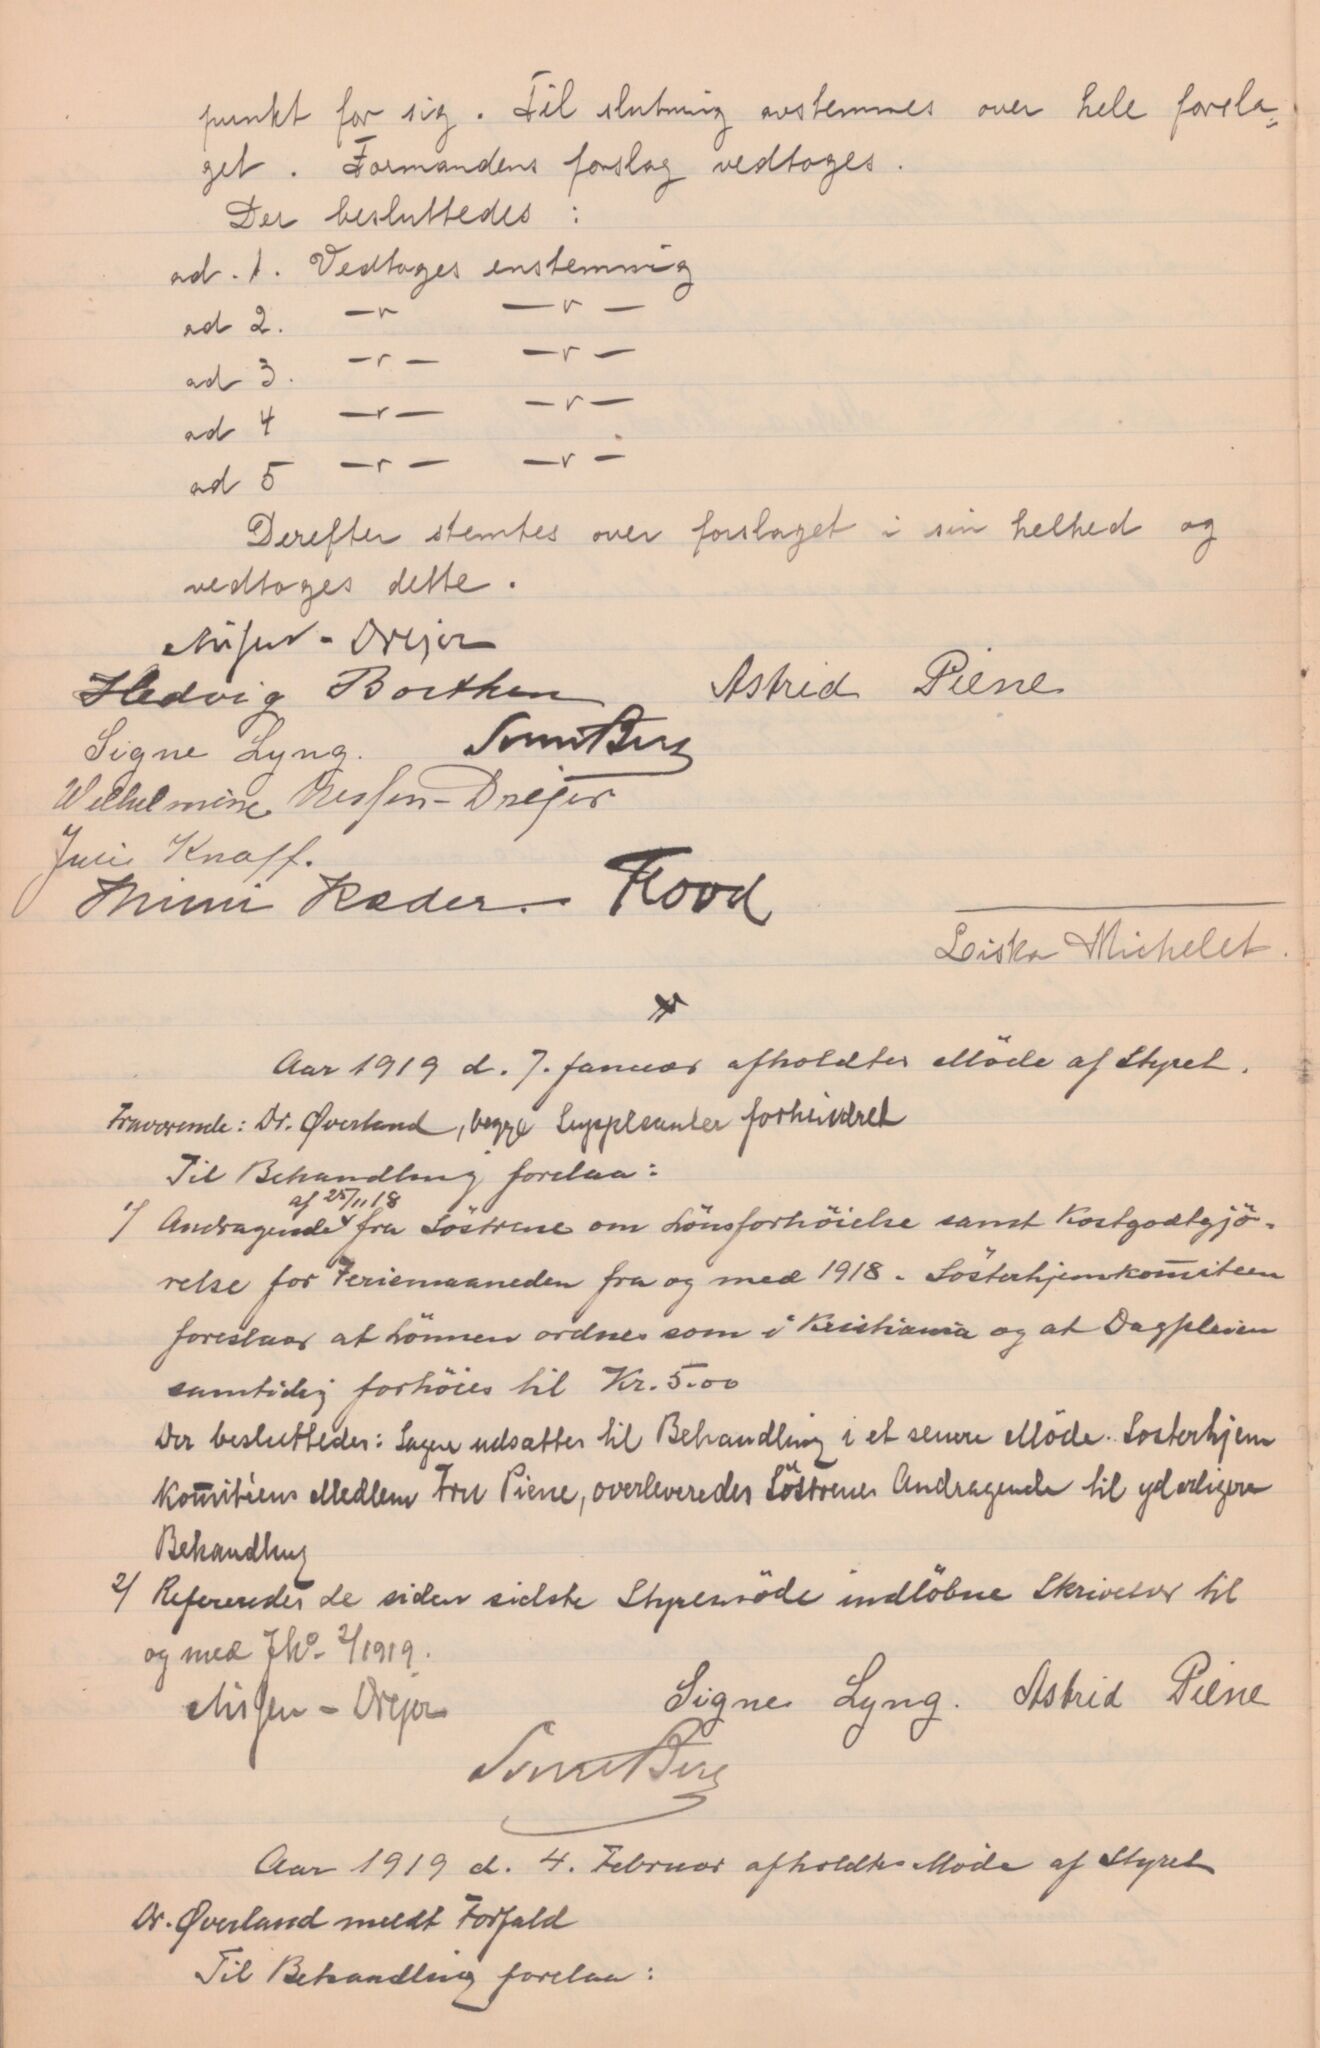 punkt for sig. Til slutning avstemmes over hele forsla=
get. Formandens forslag vedtages.
Der besluttedes:
ad. 1. Vedtages enstemmig
ad 2. —"— —"—
ad 3. —"— —"—
ad 4 —"— —"—
ad 5 —"— —"—
Derefter stemtes over forslaget i sin helhed og
vedtages dette.
Nissen-Drejer
Hedvig Borthen Astrid Piene
Signe Lyng.
Wilhelmine Nissen-Drejer
Julie Knaff.
Mimi Ræder. Flood
Liska Michelet.
Aar 1919 d. 7. Januar afholdtes Möde af Styret.
Fraværende: Dr. Øverland, begge Suppleanter forhindret
Til Behandling forelaa:
af 25/11 18
1/ Andragende fra Söstrene om Lönsforhöielse samt Kostgodtgjö-
relse for Feriemaaneden fra og med 1918. Sösterhjemkomiteen
foreslaar at Lönnen ordnes som i Kristiania og at Dagpleien
samtidig forhöies til Kr. 5.00
Der besluttedes: Sagen udsættes til Behandling i et senere Möde. Sosterhjem
Komitéens Medlem Fru Piene, overleveredes Söstrenes Andragende til yderligere
Behandling
2/ Refereredes de siden sidste Styresmöde indlöbne Skrivelser til
og med JNo 2/1919.
Nissen-Drejer Signe Lyng. Astrid Piene
Aar 1919 d. 4. Februar afholdtes Möde af Styret
Dr. Øverland meldt Forfald
Til Behandling forelaa: